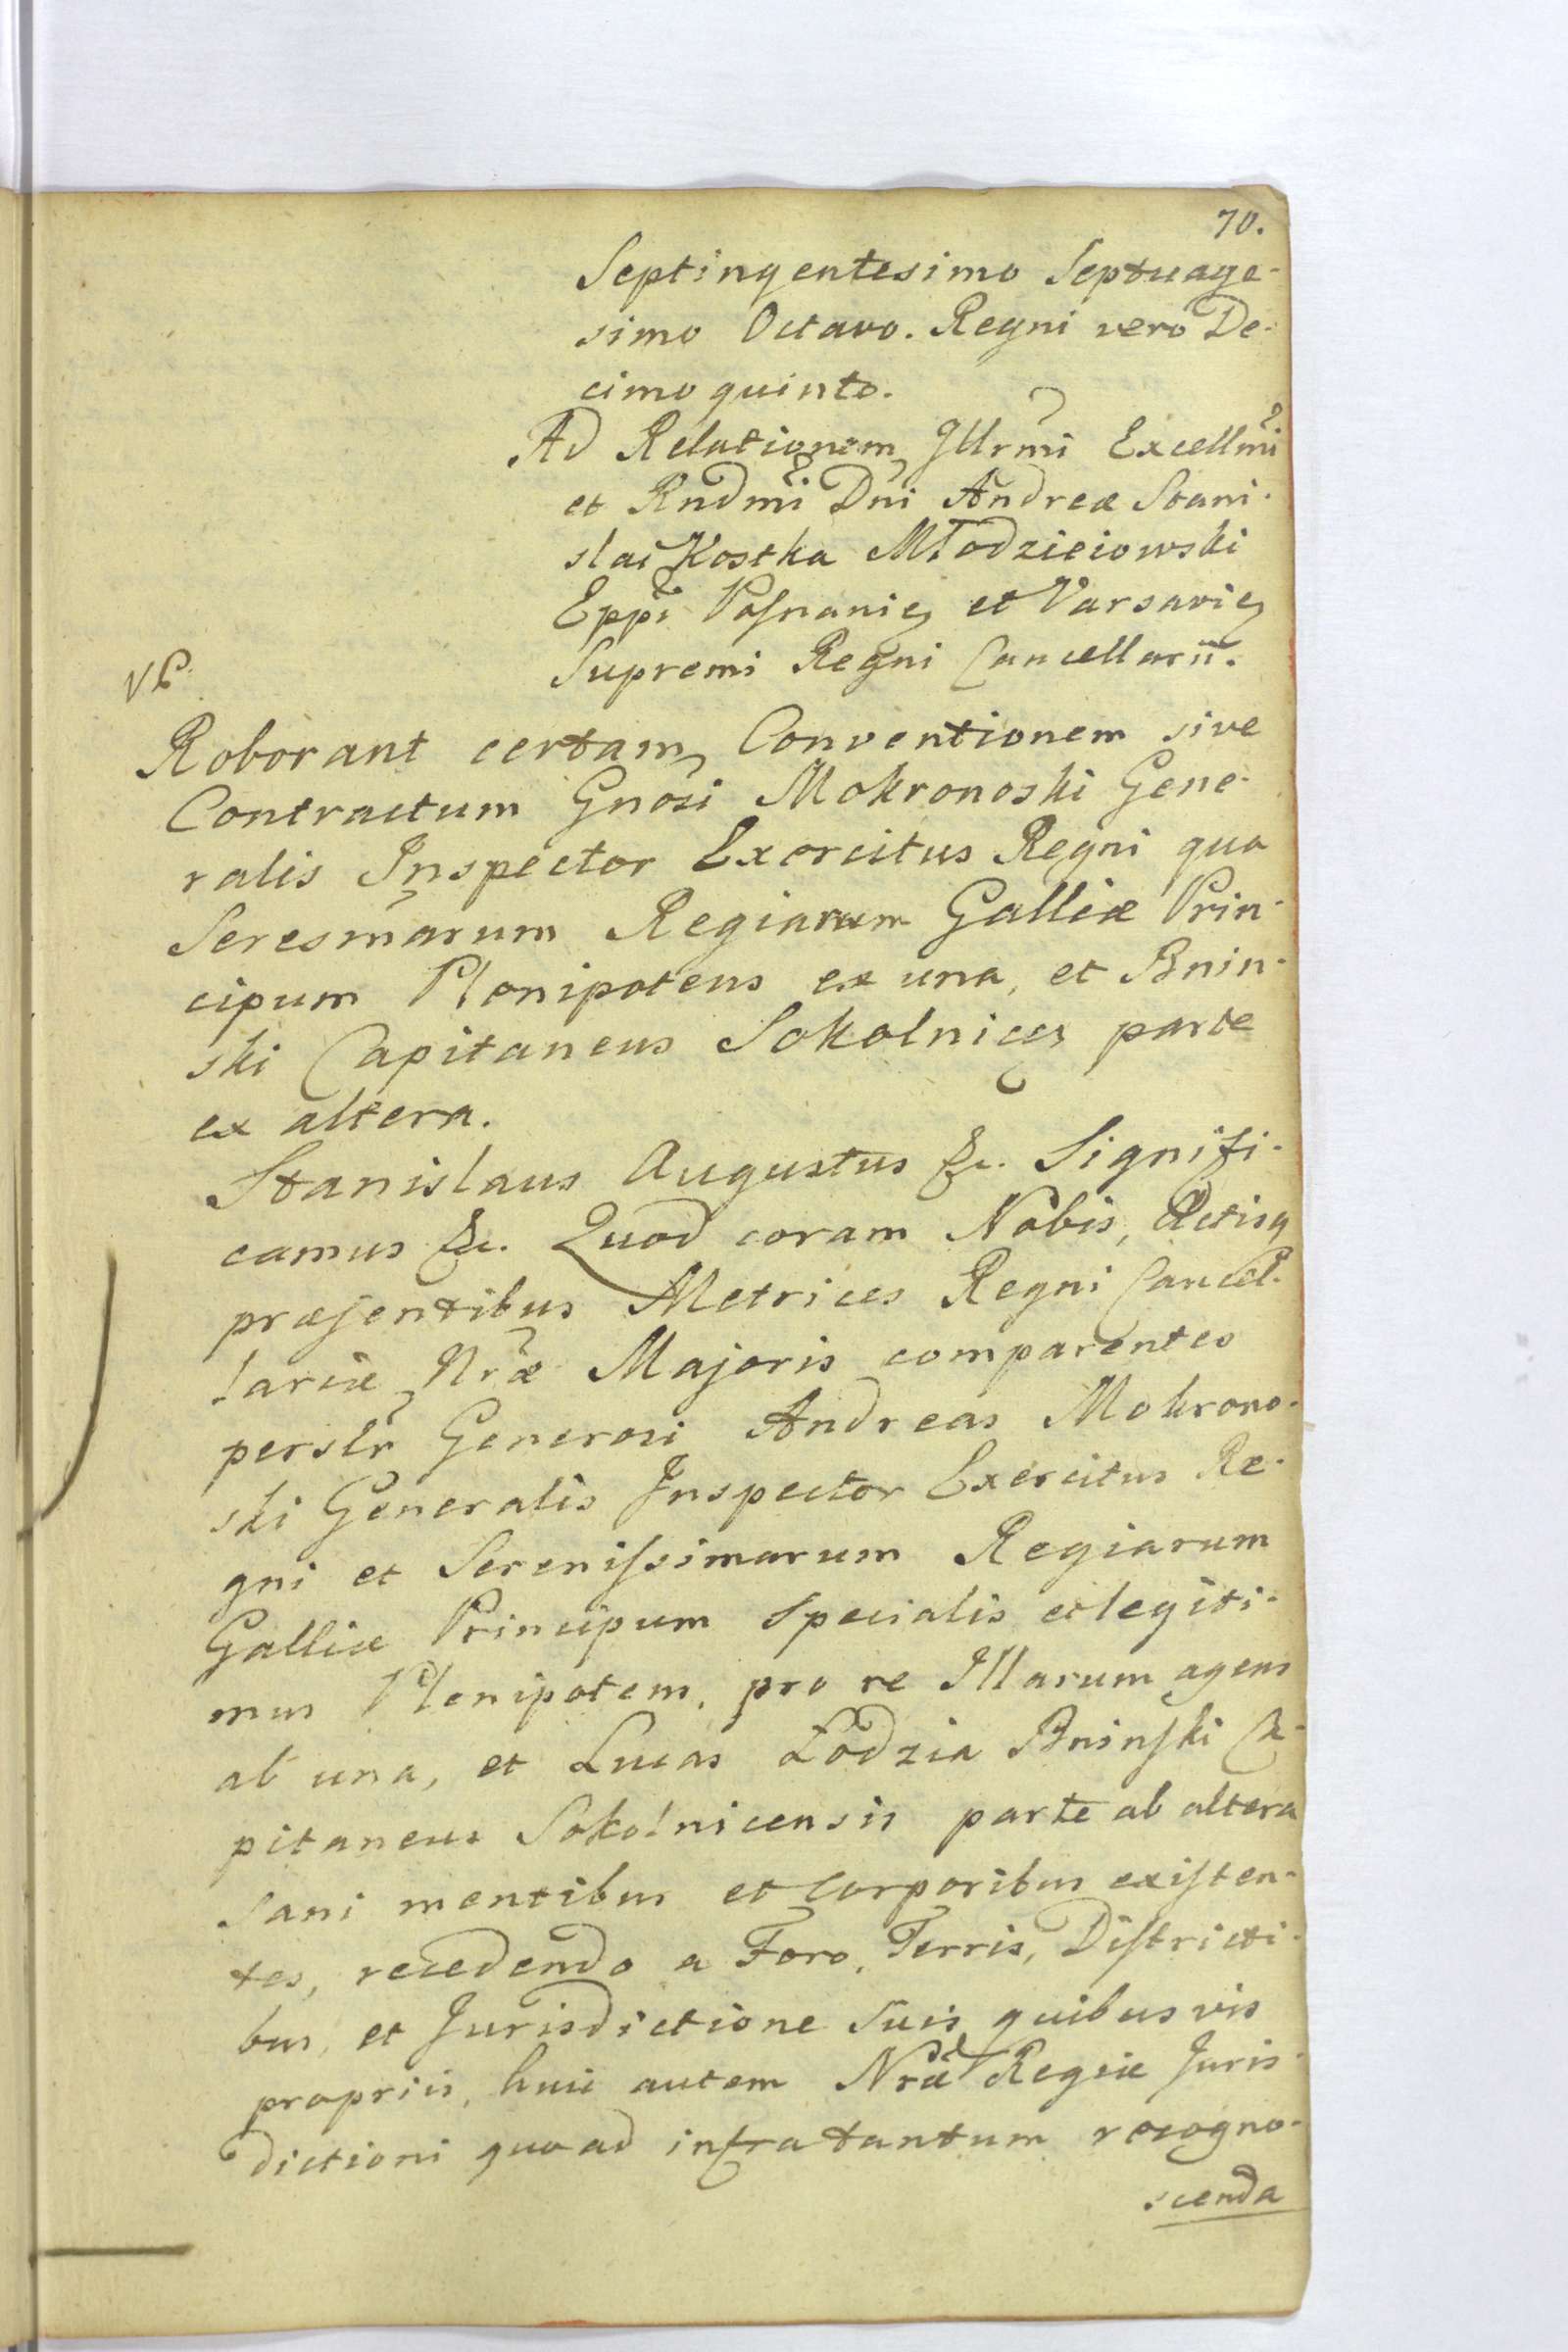 70.
Septingentesimo Septuage-
simo Octavo. Regni vero De-
cimo quinto.
Ad Relationem Illrmi Excellmi
et Rndmi Dni Andreæ Stani-
slai Kostka Młodzieiowski
Eppi Posnanię et Varsavię
Supremi Regni Cancellarii.
Roborant certam Conventionem sive
Contractum Gnosi Mokronoski Gene-
ralis Inspector Exercitus Regni qua
Seresmarum Regiarum Galliæ Prin-
cipum Plenipotens ex una, et Bnin-
ski Capitaneus Sokolnicen parte
ex altera.
Stanislaus Augustus &c. Signifi-
camus &c. Quod coram Nobis, Actisq
præsentibus Metrices Regni Cancel-
lariæ Nræ Majoris comparentes
persлr Generosi Andreas Mokrono-
ski Generalis Inspector Exercitus Re-
gni et Serenissimarum Regiarum
Galliæ Principum specialis et legiti-
mus Plenipotens, pro re Illarum agens
ab una, et Lucas Łodzia Bninski Ca-
pitaneus Sokolnicensis parte ab altera
sani mentibus et corporibus existen-
tes, recedendo a Foro, Terris, Districti-
bus, et Jurisdictione suis quibusvis
propriis, huic autem Nræ Regiæ Juris-
dictioni quoad infra tantum recogno-
scenda